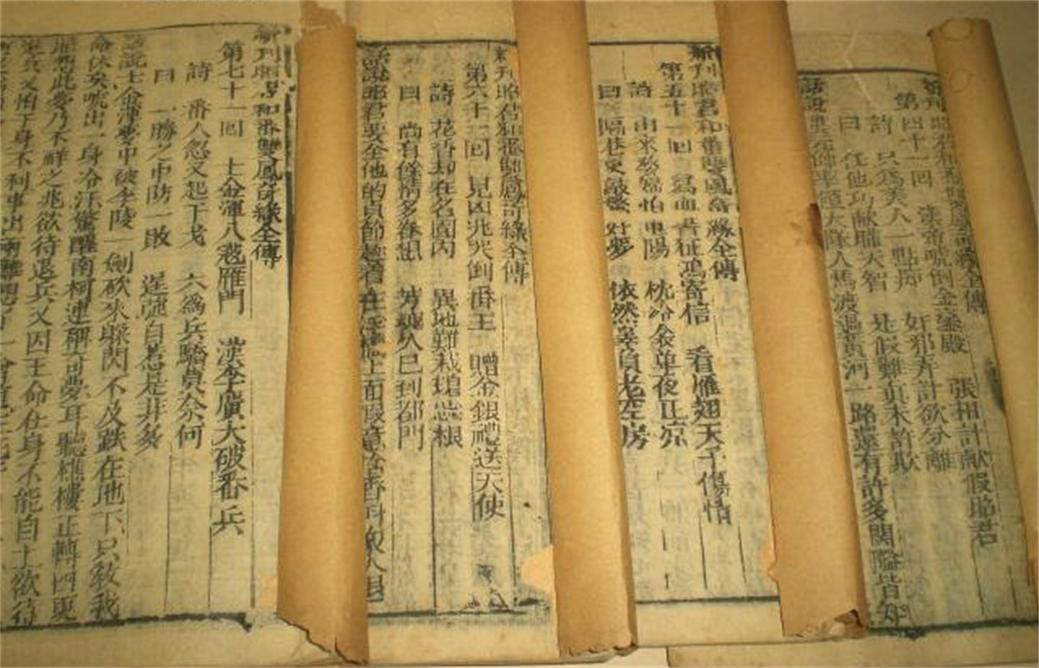 新刊昭君和番雙鳳奇緣全傳
第四十一回 漢帝唬倒金鑾殿 張相計献假昭君
詩 只為美人一點 奸邪弄計欲分離
曰 任他巧献瞞天智 是假難真未許欺
話說元帥率領大隊人馬渡過黃河一路還有許多關隘皆知
新刊昭君和番雙鳳奇緣全傳
第五十一回 寫血書征鴻寄信 看雁翅天子傷情
詩 由來愁寫怕重陽 枕冷衾單夜正涼
曰 隔巷更敲驚好夢 依然辜負老空房
新刊昭君和番雙鳳奇緣全傳
第六十一回 見凶兆哭倒番王 贈金銀禮送天使
詩 花香却在名園內 異地難栽根
曰 尚有餘情多眷想 芳魂久已到邵門
話說郎君要全他的貞節上面
新刊昭君和番雙鳳奇緣全傳
第七十一回 土金渾入寇雁門 漢李廣大破番兵
詩 番人忽又起干戈 只為兵驕莫奈何
曰 一勝必中防一敗 逞強自恃是非多
話說土金渾夢中被李陵一劍砍來躲閃不及跌在地下只敎我
命休矣唬出一身冷汗驚醒南柯連稱奇夢耳聽樵樓正轉四更
堆想此夢乃不祥之兆欲待退兵又因王命在身不能自主欲待
進兵又怕于身不利事出兩難